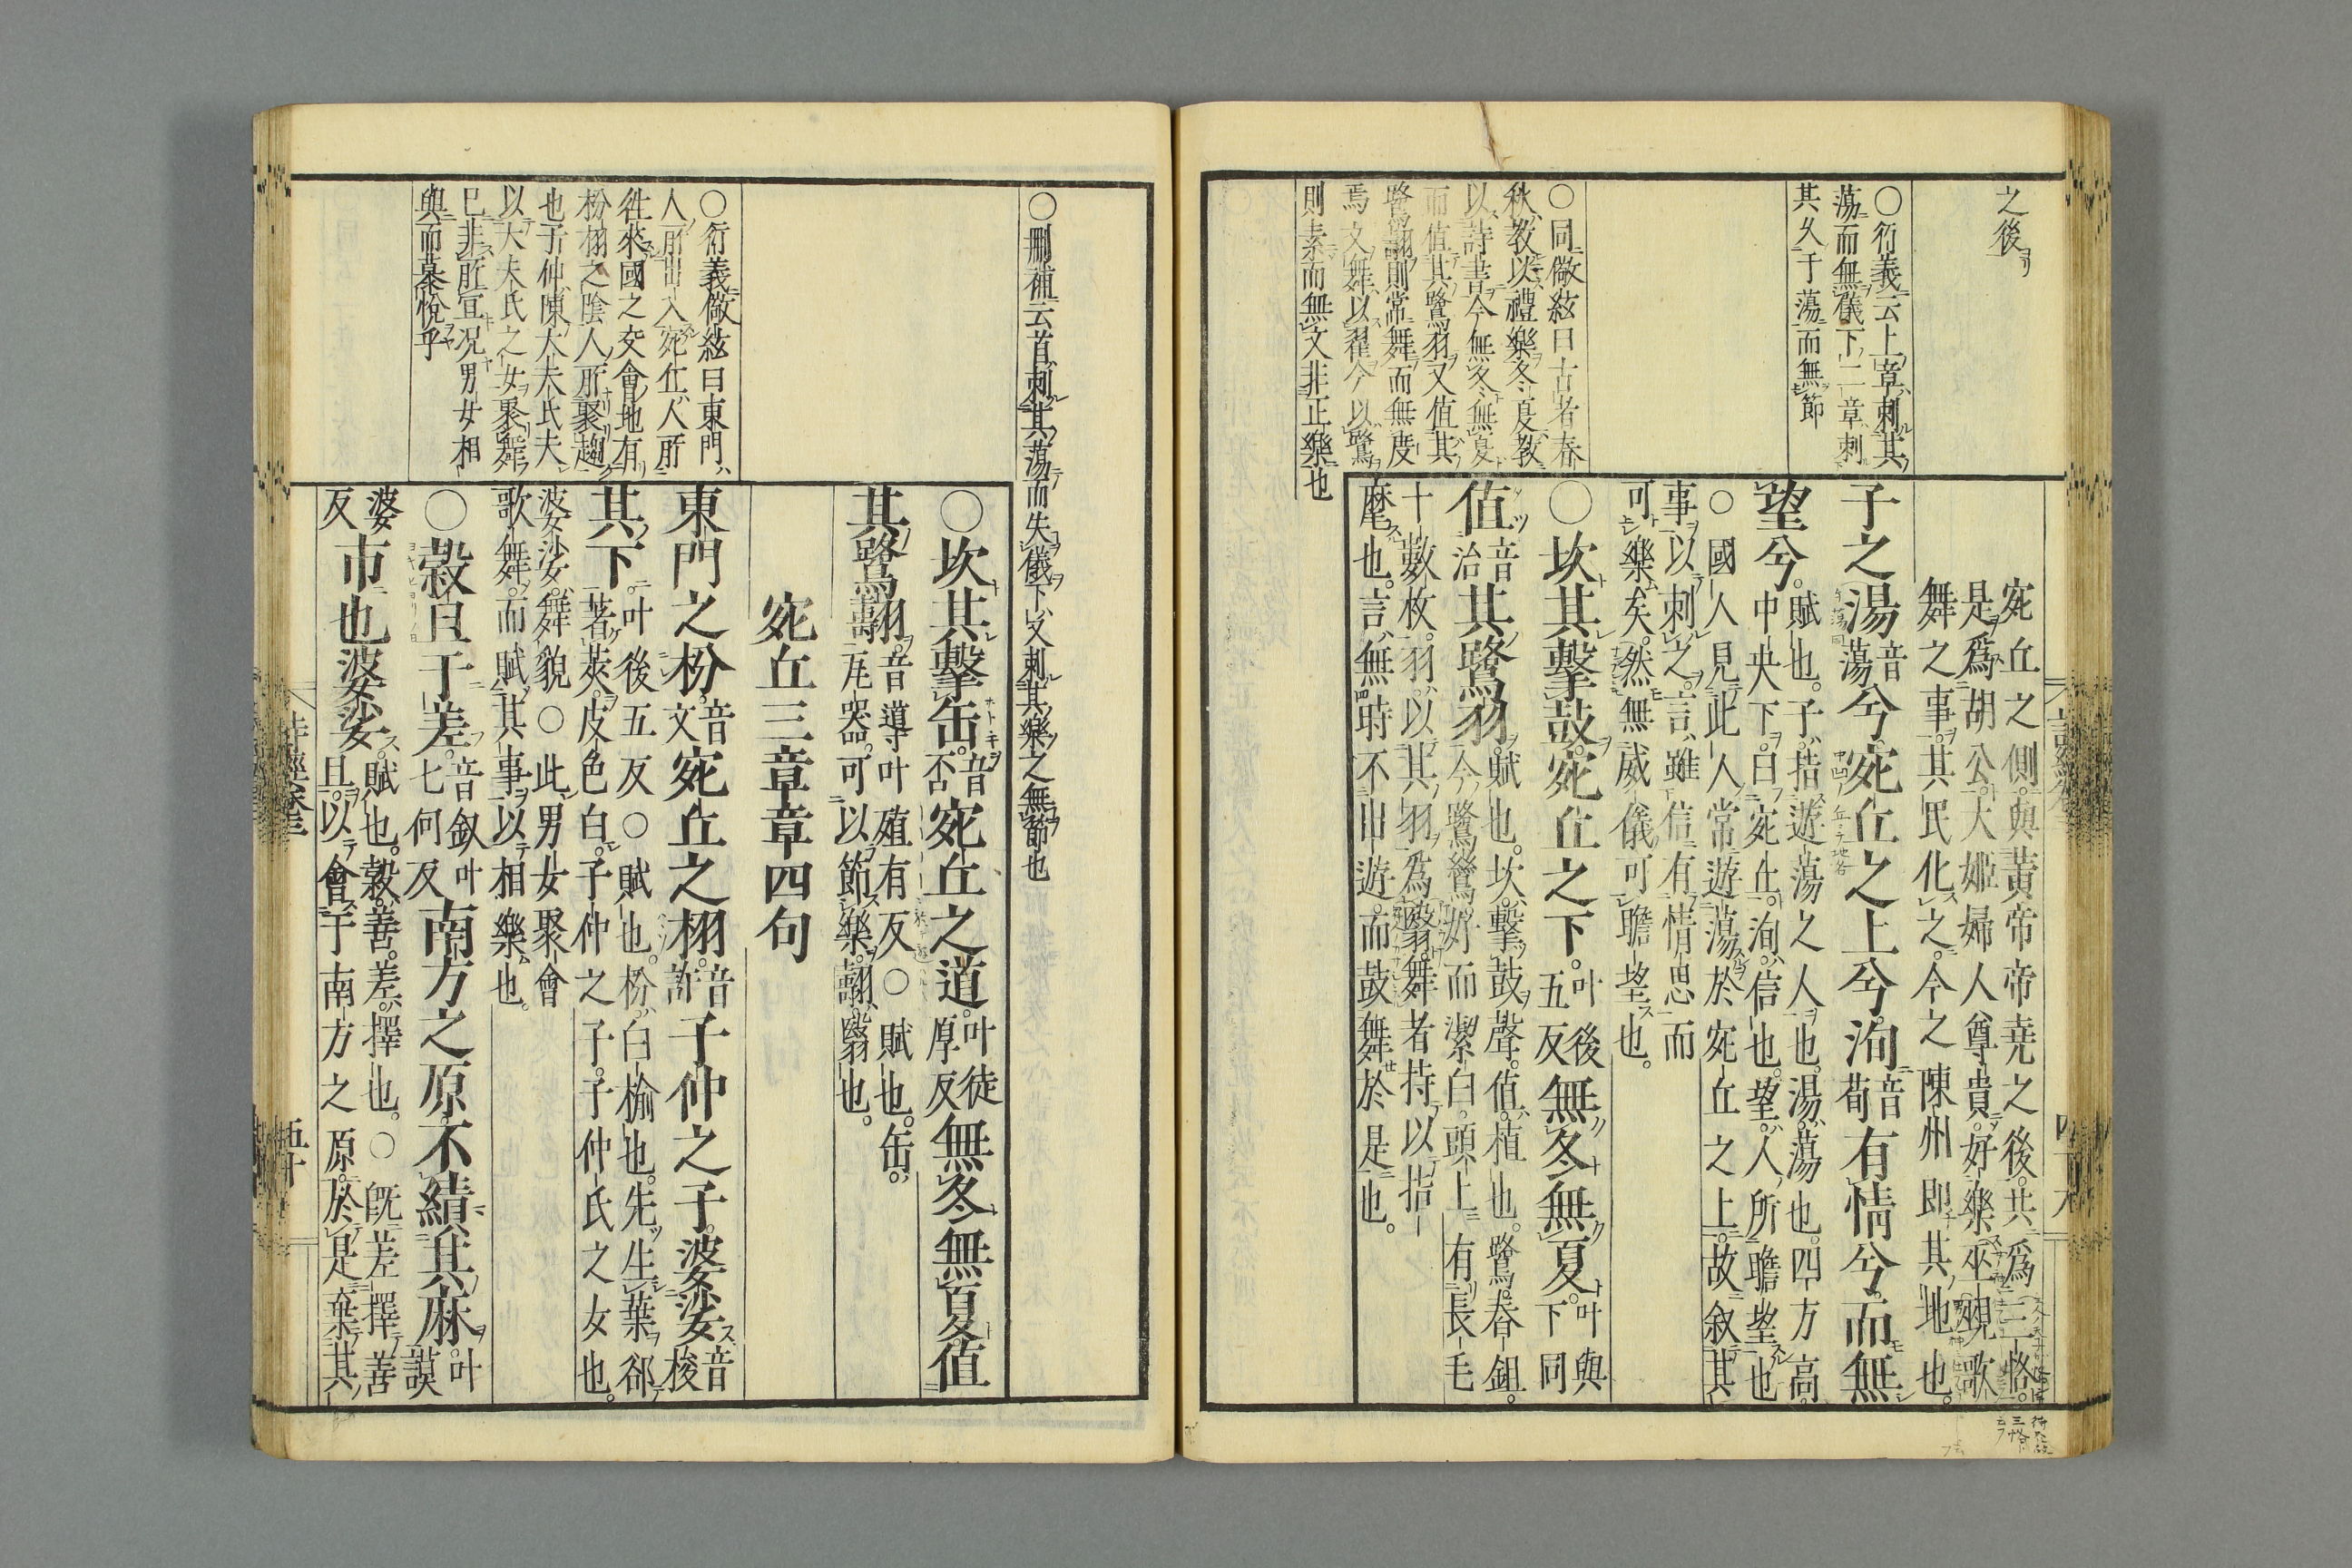 之後
〇衍義云上章刺其
蕩而無儀下二章刺
其久于蕩而無節
〇同儆絃曰古者春
秋教以禮樂冬夏教
以詩書今無冬無夏
而值其鷺羽又值其
鷺翿則常舞而無度
焉文舞以翟今以鷺
則素而無文非正樂也
宛丘之側與黃帝帝堯之後共爲三恪
是爲胡公大姬婦人尊貴好樂巫覡歌
舞之事其民化之今之陳州即其地也
子之湯音蕩兮宛丘之上兮洵音荀有情兮而無
望兮賦也子指遊蕩之人也湯蕩也四方高
中央下曰宛丘洵信也望人所瞻望也
〇國人見此人常遊蕩於宛丘之上故叙其
事以刺之言雖信有情思而
可樂矣然無威儀可瞻望也
〇坎其擊鼓宛丘之下叶後五反無冬無夏叶與下同
值音治其鷺羽賦也坎擊鼓聲值植也鷺舂鉏
今鷺鷥好而潔白頭上有長毛
十數枚羽以其羽爲翳舞者持以指
麾也言無時不出遊而鼓舞於是也
〇刪補云首刺其蕩而失儀下又刺其樂之無節也
〇衍義儆絃曰東門
人所出入宛丘人所
徃來國之交會地有
枌栩之陰人所聚趨
也子仲陳大夫氏夫
以大夫氏之女聚舞
已非所宜况男女相
與而慕悅乎
〇坎其擊缶音否宛丘之道叶徒厚反無冬無夏值
其鷺翿音導叶殖有反〇賦也缶
瓦器可以節樂翿翳也
宛丘三章章四句
東門之枌音文宛丘之栩音許子仲之子婆娑音梭
其下叶後五反〇賦也枌白榆也先生葉郤
著莢皮色白子仲之子子仲氏之女也
婆娑舞貌〇此男女聚會
歌舞而賦其事以相樂也
〇穀旦于差音釵叶七何反南方之原不績其麻叶謨
婆反市也婆娑賦也穀善差擇也〇既差擇善
旦以會于南方之原於是棄其